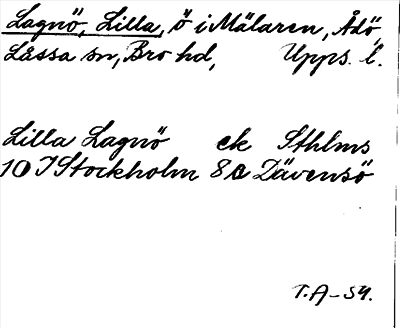 Lagnö, Lilla, ö i Mälaren, Ådö,
Låssa sn, Bro hd, Upps. l.
Lilla Lagnö ek Sthlms
10 I Stockholm 8 a Dävensö
T.A-54.